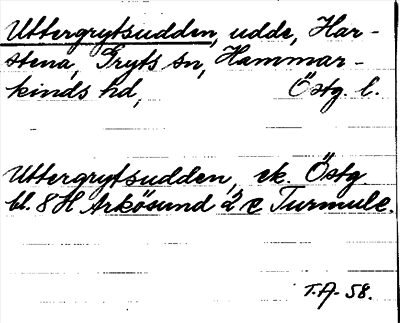 Uttergrytsudden, udde, Har-
stena, Gryts sn, Hammar-
kinds hd, Östg. l.
Uttergrytsudden, ek. Östg
bl. 8 H Arkösund 2 c Turmulc.
T.A. 58.